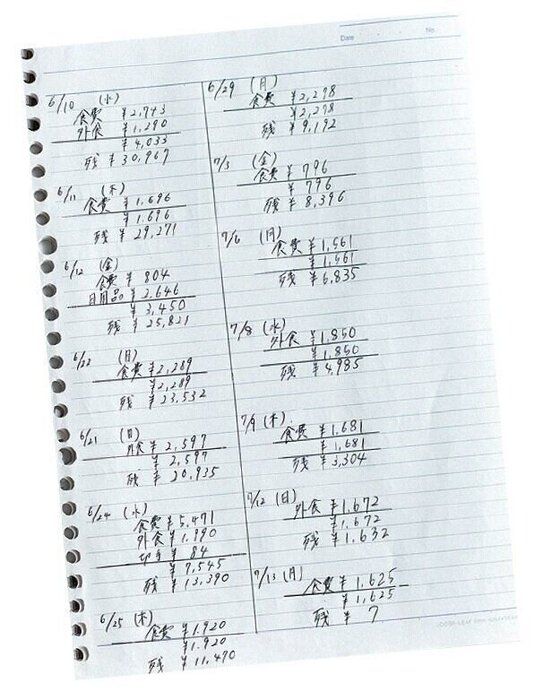 Date
No.
6/10 (水)
食費 ¥2,743
外食 ¥1,290
¥4,033
残 ¥30,967
6/11 (木)
食費 ¥1,696
¥1,696
残 ¥29,271
6/12 (金)
食費 ¥804
日用品 ¥2,646
¥3,450
残 ¥25,821
6/22 (月)
食費 ¥2,289
¥2,289
残 ¥23,532
6/21 (日)
外食 ¥2,597
¥2,597
残 ¥20,935
6/24 (水)
食費 ¥5,471
外食 ¥1,990
切手 ¥84
¥7,545
残 ¥13,390
6/25 (木)
食費 ¥1,920
¥1,920
残 ¥11,470
6/29 (月)
食費 ¥2,278
¥2,278
残 ¥9,192
7/3 (金)
食費 ¥796
¥796
残 ¥8,396
7/6 (月)
食費 ¥1,561
¥1,561
残 ¥6,835
7/8 (水)
外食 ¥1,850
¥1,850
残 ¥4,985
7/9 (木)
食費 ¥1,681
¥1,681
残 ¥3,304
7/12 (日)
外食 ¥1,672
¥1,672
残 ¥1,632
7/13 (月)
食費 ¥1,625
¥1,625
残 ¥7